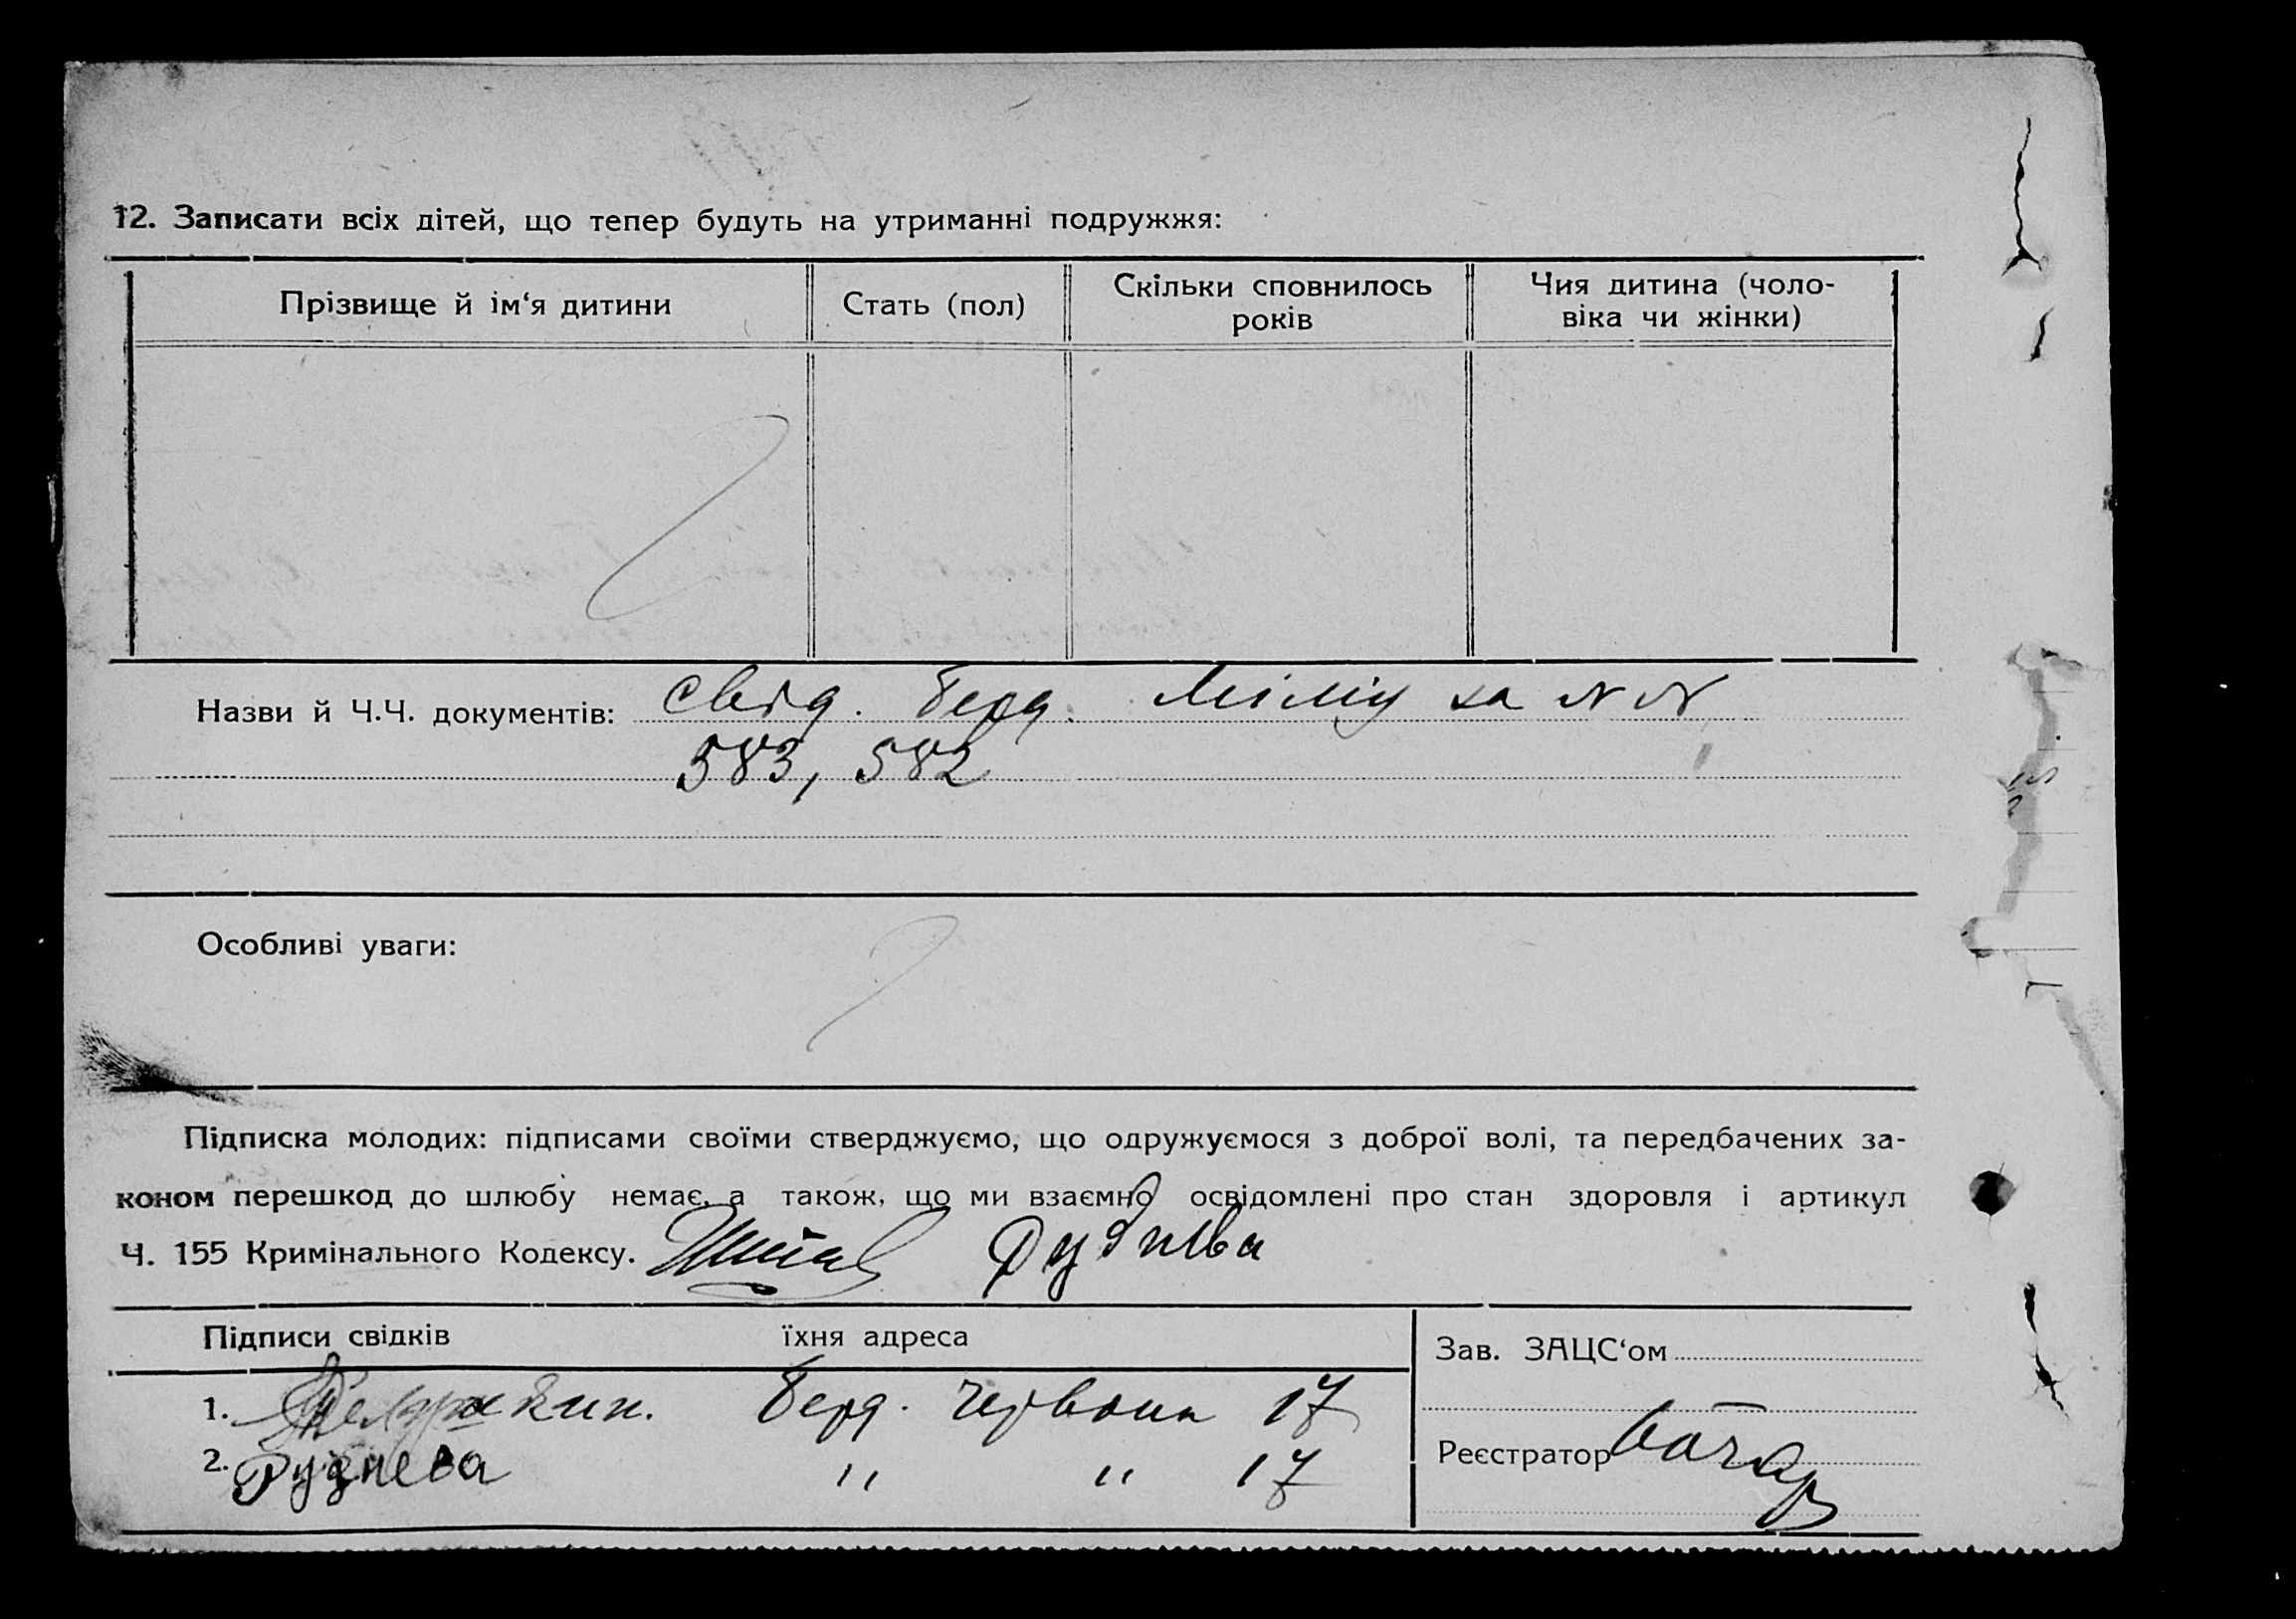 12. Записати всіх дітей, що тепер будуть на утриманні подружжя:
Прізвище й ім‘я дитини
Стать (пол)
Скільки сповнилось
років
Чия дитина (чоло-
віка чи жінки)
Назви й Ч.Ч. документів: Свід. Берд. Міліц за N N
583, 582
Особливі уваги:
Підписка молодих: підписами своїми стверджуємо, що одружуємося з доброї волі, та передбачених за-
коном перешкод до шлюбу немає, а також, що ми взаємно освідомлені про стан здоровля і артикул
Ч. 155 Кримінального Кодексу. Руднева
Підписи свідків їхня адреса
1. Берд. Червона 17
2. Руднева " " 17
Зав. ЗАЦС‘ом
Реєстратор